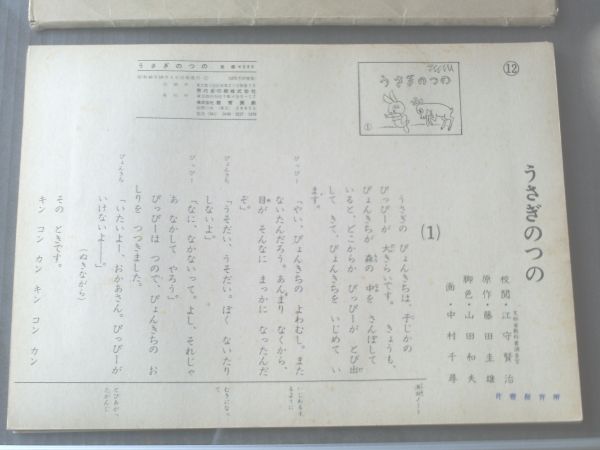 ⑫
うさぎのつの
うさぎのつの
校閲・江守賢治
原作・藤田圭雄
脚色・山田和夫
画・中村千尋
(1)
うさぎの ぴょんきちは、子じかの
ぴっぴーが 大きらいです。 きょうも、
ぴょんきちが 森の 中を さんぽして
いると、どこからか ぴっぴーが とび出
して きて、ぴょんきちを いじめて い
ます。
ぴっぴー
「やい、ぴょんきちの よわむし。また
ないたんだろう。あんまり なくから、
目が そんなに まっかに なったんだ
ぞ。」
ぴょんきち
「うそだい、うそだい。ぼく ないたり
しないよ」。
ぴっぴー
「なに、なかないって。よし、それじゃ
あ なかして やろう。」
ぴっぴーは つので、ぴょんきちの お
しりを つつきました。
ぴょんきち
「いたいよー、おかあさん。ぴっぴーが
いけないよ――。」
(なきながら)
その ときです。
キン コン カン キン コン カン
うさぎのつの
①
演出ノート
いじめるように
むきになって